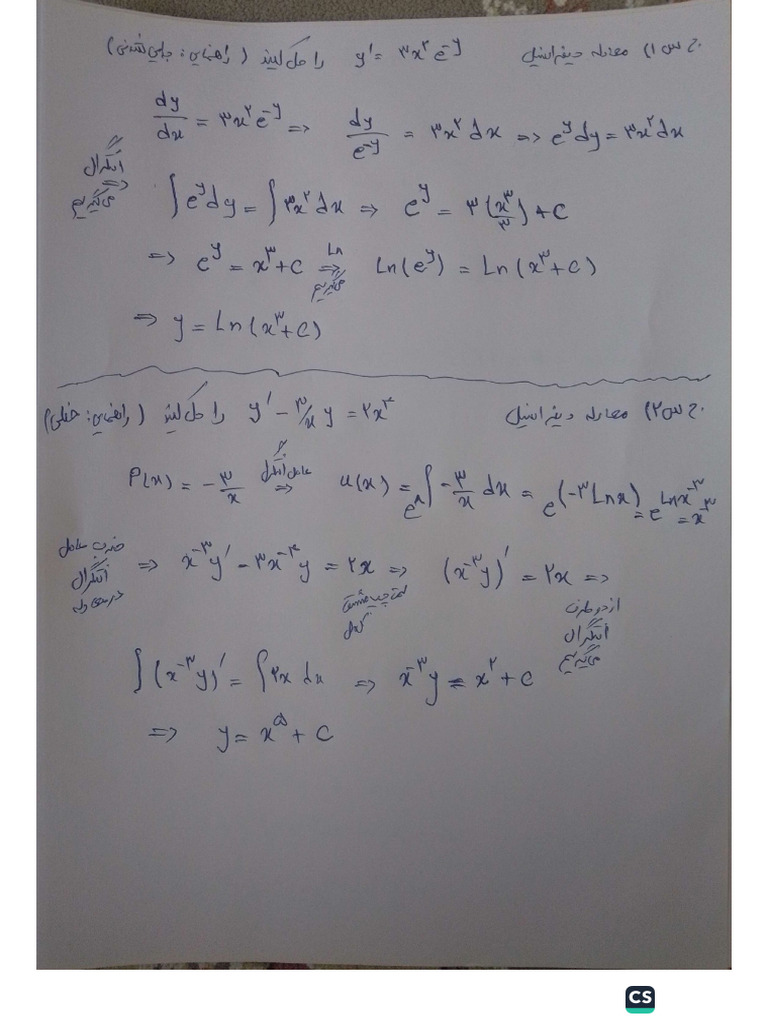 ج س ۱) معادله دیفرانسیل y' = ۳x^۲ e^-y را حل کنید (راهنمایی: جدایی شدنی)
dy/dx = ۳x^۲ e^-y => dy/e^-y = ۳x^۲ dx => e^y dy = ۳x^۲ dx
انتگرال می‌گیریم => ∫ e^y dy = ∫ ۳x^۲ dx => e^y = ۳(x^۳/۳) + C
=> e^y = x^۳ + C => Ln می‌گیریم Ln(e^y) = Ln(x^۳ + C)
=> y = Ln(x^۳ + C)
ج س ۲) معادله دیفرانسیل y' - ۳/x y = ۲x^۴ را حل کنید (راهنمایی: خطی)
P(x) = -۳/x => عامل انتگرال u(x) = e^∫ -۳/x dx = e^(-۳Lnx) = e^Lnx^-۳ = x^-۳
ضرب عامل انتگرال در معادله => x^-۳ y' - ۳x^-۴ y = ۲x => (x^-۳ y)' = ۲x =>
از دو طرف انتگرال می‌گیریم
∫ (x^-۳ y)' = ∫ ۲x dx => x^-۳ y = x^۲ + C
=> y = x^۵ + C
CS